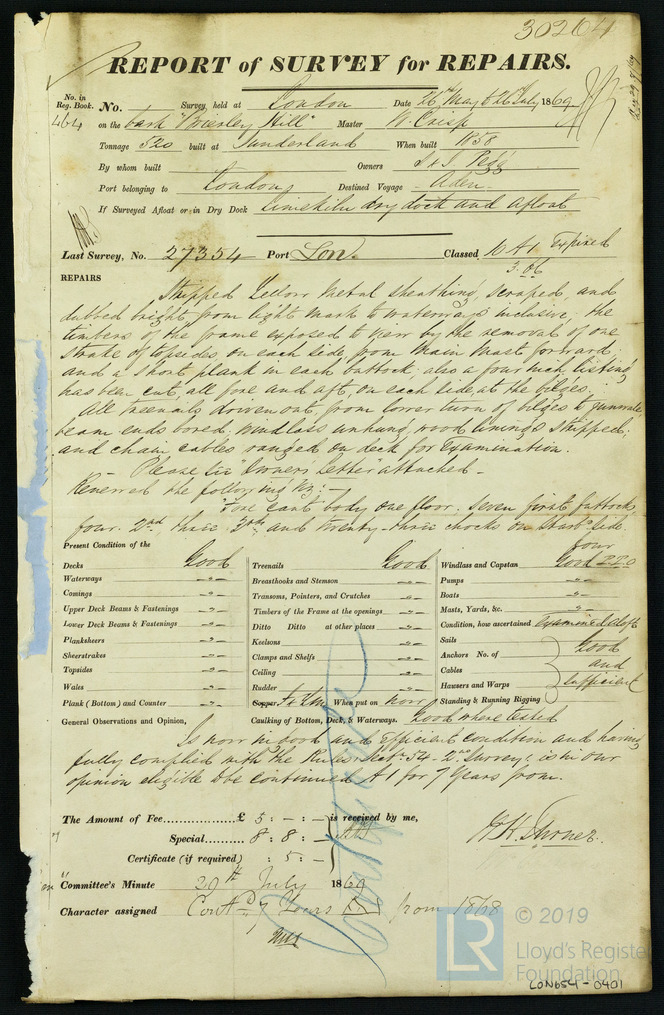 30264
REPORT of SURVEY for REPAIRS.
No. in Reg. Book. No. Survey held at London Date 26th May to 26 July 1869
464 on the bark "Brierley Hill" Master W. Crisp
Tonnage 520 built at Sunderland When built 1858
By whom built Owners Pegg
Port belonging to London Destined Voyage Aden
If Surveyed Afloat or in Dry Dock Limekiln dry dock and afloat
Last Survey, No. 27354 Port Lon. Classed 10 A1 Expired
3.06
REPAIRS
Stripped Yellow Metal sheathing, scraped, and
dubbed bright from light mark to waterways inclusive, the
timbers of the frame exposed to view by the removal of one
strake of topsides, on each side, from Main Mast forward,
and a short plank in each buttock, also a four inch listing
has been cut, all fore and aft, on each side, at the bilges.
All treenails driven out, from lower turn of bilges to gunwale
beam ends bored. Windlass unhung, wood linings stripped,
and chain cables ranged on deck for examination.
Please see Owners Letter attached
Renewed the following viz:
Fore cant body one floor. Seven first futtocks,
four 2nd three 3rd and twenty-three chocks on Starbd side
Present Condition of the
Decks Good Treenails Good Windlass and Capstan Good
four
220
Waterways -"- Breasthooks and Stemson -"- Pumps -"-
Comings -"- Transoms, Pointers, and Crutches -"- Boats -"-
Upper Deck Beams & Fastenings -"- Timbers of the Frame at the openings -"- Masts, Yards, &c. -"-
Lower Deck Beams & Fastenings -"- Ditto Ditto at other places -"- Condition, how ascertained Examined aloft
Planksheers -"- Keelsons -"- Sails Good
Sheerstrakes -"- Clamps and Shelfs -"- Anchors No. of
Topsides -"- Ceiling -"- Cables and
Wales -"- Rudder -"- Hawsers and Warps sufficient
Plank (Bottom) and Counter -"- Copper When put on now Standing & Running Rigging
General Observations and Opinion, Caulking of Bottom, Deck, & Waterways. Good where tested
Is now in good and efficient condition and having
fully complied with the Rules, Sect. 54. 2nd Survey, is in our
opinion eligible to be continued A 1 for 7 Years from.
The Amount of Fee £ 5 : - : - is received by me,
Special 8 : 8 : -
Certificate (if required) : 5 : -
H. H. Turner.
Committee's Minute 29th July 1869
Character assigned Contd. 7 Years from 1868
LR © 2019
Lloyd's Register
Foundation
LON654-0401